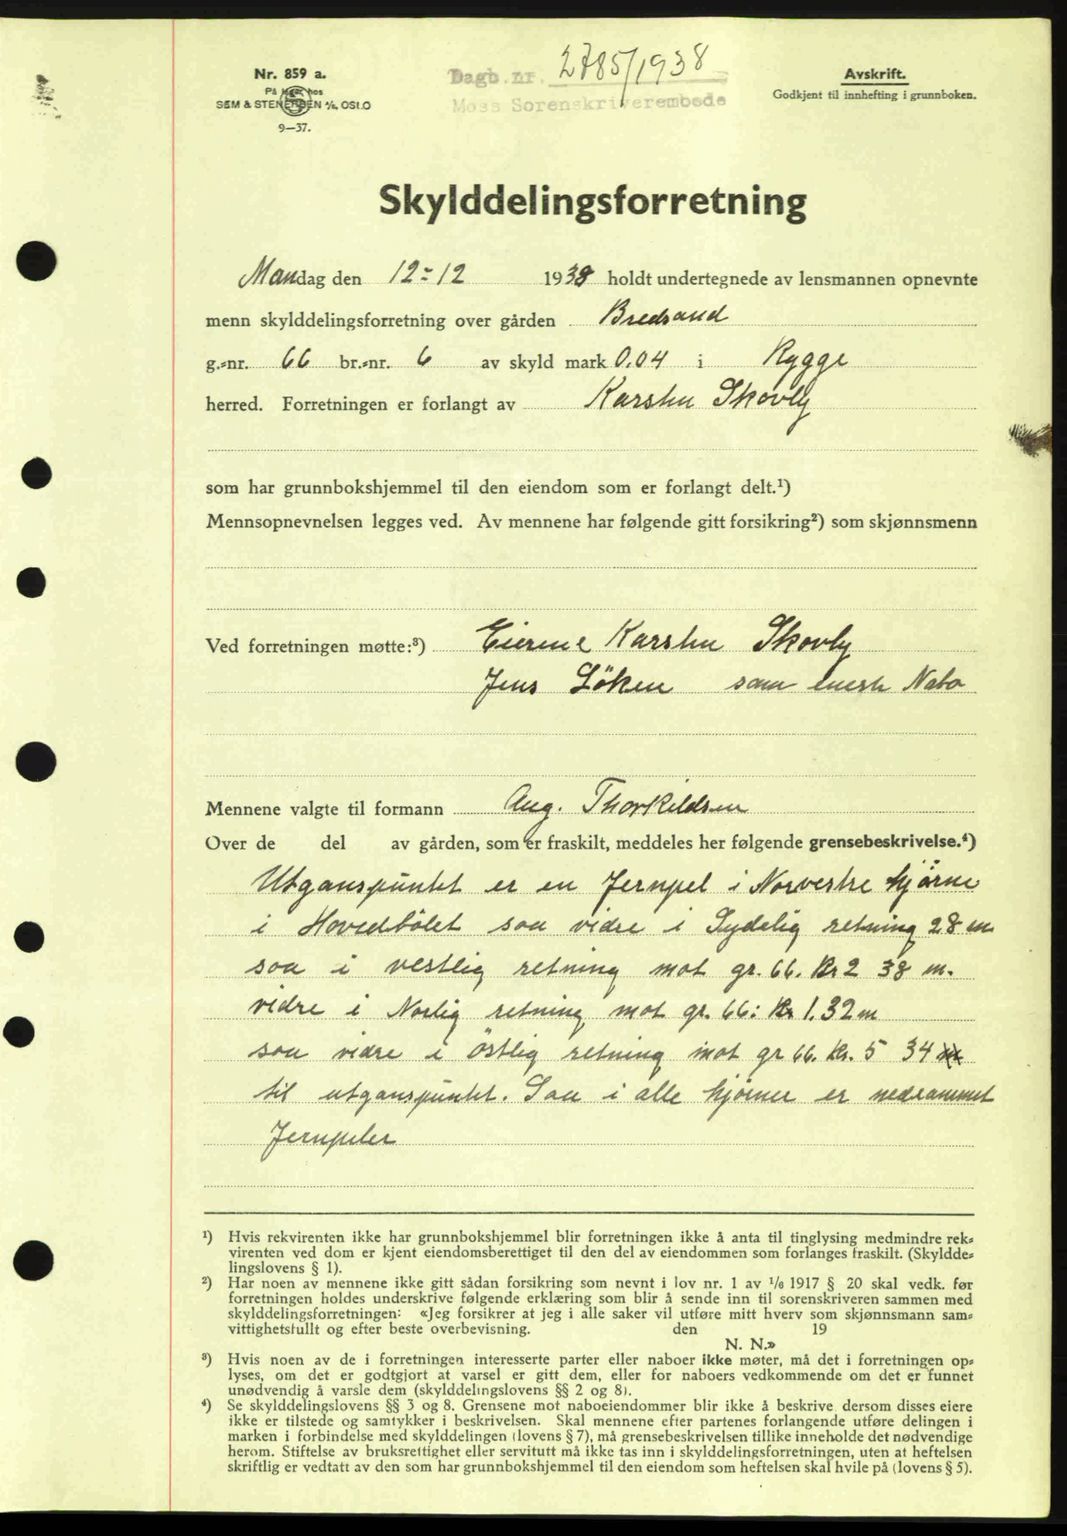 Nr. 859 a.
På lager hos
SEM & STENERSEN A/S, OSLO
9—37.
Dagb. nr. 2785/1938
Moss Sorenskriverembede
Avskrift.
Godkjent til innhefting i grunnboken.
Skylddelingsforretning
Mandag den 12-12 1938 holdt undertegnede av lensmannen opnevnte
menn skylddelingsforretning over gården Bredsand
g.-nr. 66 br.-nr. 6 av skyld mark 0.04 i Rygge
herred. Forretningen er forlangt av Karsten Skovly
som har grunnbokshjemmel til den eiendom som er forlangt delt.¹)
Mennsopnevnelsen legges ved. Av mennene har følgende gitt forsikring²) som skjønnsmenn
Ved forretningen møtte:³) Eierene Karsten Skovly
Jens Löken som eneste Nabo
Mennene valgte til formann Aug. Thorkildsen
Over de del av gården, som er fraskilt, meddeles her følgende grensebeskrivelse.⁴)
Utganspunktet er en Jernpel i Norvestre hjørne
i Hovedbölet saa vidre i Sydelig retning 28 m
saa i vestlig retning mot gr. 66. Br 2 38 m.
vidre i Norlig retning mot gr. 66: Br 1. 32 m
saa vidre i östlig retning mot gr 66. Br. 5 34 m
til utganspunktet. Saa i alle hjörner er nedrammet
Jernpeler
¹) Hvis rekvirenten ikke har grunnbokshjemmel blir forretningen ikke å anta til tinglysing medmindre rek-
virenten ved dom er kjent eiendomsberettiget til den del av eiendommen som forlanges fraskilt. (Skyldde-
lingslovens § 1).
²) Har noen av mennene ikke gitt sådan forsikring som nevnt i lov nr. 1 av 1/6 1917 § 20 skal vedk. før
forretningen holdes underskrive følgende erklæring som blir å sende inn til sorenskriveren sammen med
skylddelingsforretningen: «Jeg forsikrer at jeg i alle saker vil utføre mitt hverv som skjønnsmann sam-
vittighetsfullt og efter beste overbevisning. den 19
N. N.»
³) Hvis noen av de i forretningen interesserte parter eller naboer ikke møter, må det i forretningen op-
lyses, om det er godtgjort at varsel er gitt dem, eller for naboers vedkommende om det er funnet
unødvendig å varsle dem (skylddelingslovens §§ 2 og 8).
⁴) Se skylddelingslovens §§ 3 og 8. Grensene mot naboeiendommer blir ikke å beskrive dersom disses eiere
ikke er tilstede og samtykker i beskrivelsen. Skal mennene efter partenes forlangende utføre delingen i
marken i forbindelse med skylddelingen (lovens § 7), må grensebeskrivelsen tillike inneholde det nødvendige
herom. Stiftelse av bruksrettighet eller servitutt må ikke tas inn i skylddelingsforretningen, uten at heftelsen
skriftlig er vedtatt av den som har grunnbokshjemmel til den eiendom som heftelsen skal hvile på (lovens § 5).